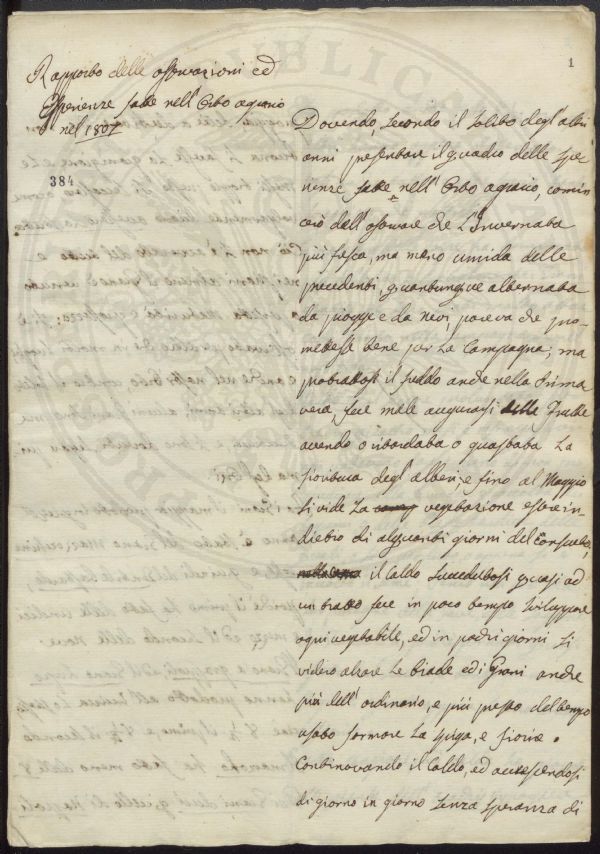 Rapporto delle osservazioni ed
Esperienze fatte nell'Orto agrario
nel 1807
384
1
Dovendo, secondo il solito degl'altri
anni presentare il quadro delle Spe-
rienze fatte nell'Orto agrario, comin-
cerò dall'osservare che l'Invernata
più fresca, ma meno umida delle
precedenti, quantunque alternata
da piogge e da nevi, pareva che pro-
mettesse bene per la Campagna; ma
protrattosi il freddo anche nella Prima
vera, fece male augurarsi delle Frutte
avendo o ritardata o guastata la
fioritura degl'alberi, e fino al Maggio
si vide la vegetazione essere in-
dietro di alquanti giorni del consueto,
il caldo succedutosi quasi ad
un tratto fece in poco tempo sviluppare
ogni vegetabile, ed in pochi giorni si
videro alzare le biade ed i Grani anche
più dell'ordinario, e più presto del tempo
usato formare la spiga, e fiorire.
Continovando il caldo, ed accrescendosi
di giorno in giorno senza speranza di